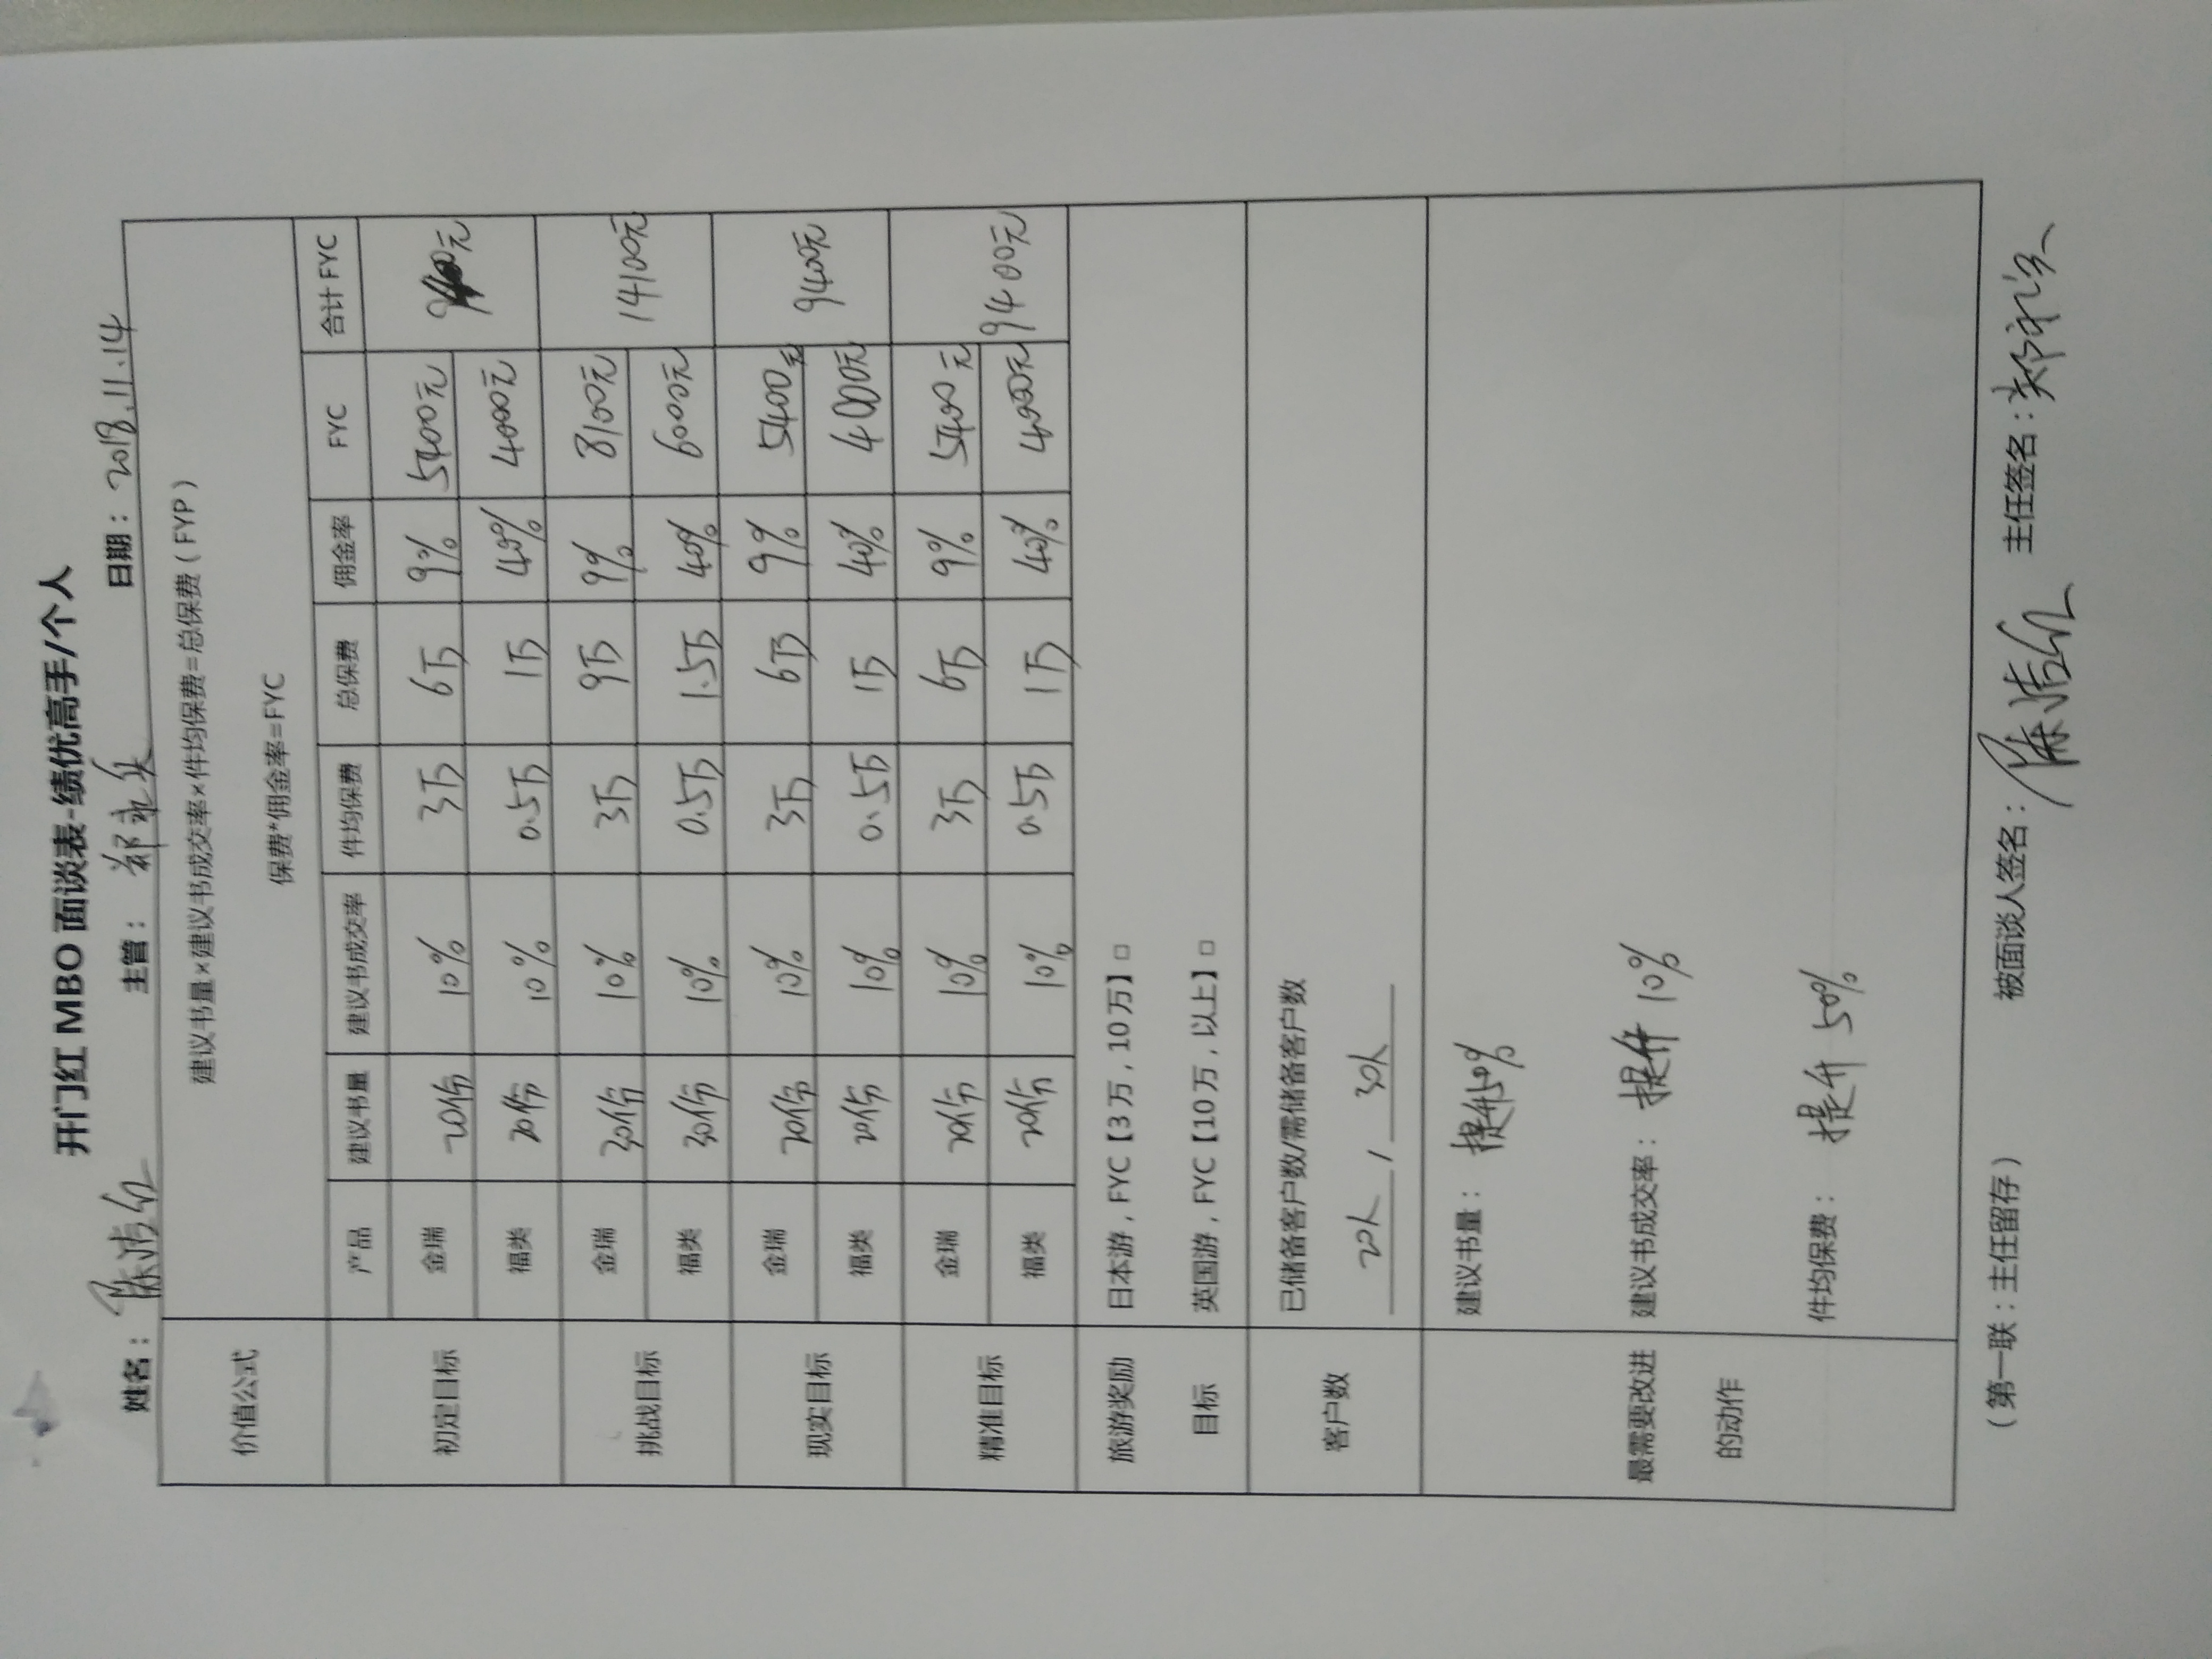 开门红 MBO 面谈表-绩优高手/个人
姓名： 主管： 日期：2018.11.14
价值公式 建议书量×建议书成交率×件均保费=总保费（FYP）
保费*佣金率=FYC
产品 建议书量 建议书成交率 件均保费 总保费 佣金率 FYC 合计 FYC
初定目标 金瑞 20份 10% 3万 6万 9% 5400元
福类 20份 10% 0.5万 1万 40% 4000元
挑战目标 金瑞 30份 10% 3万 9万 9% 8100元 14100元
福类 30份 10% 0.5万 1.5万 40% 6000元
现实目标 金瑞 20份 10% 3万 6万 9% 5400元 9400元
福类 20份 10% 0.5万 1万 40% 4000元
精准目标 金瑞 20份 10% 3万 6万 9% 5400元 9400元
福类 20份 10% 0.5万 1万 40% 4000元
旅游奖励 日本游，FYC【3万，10万】□
目标 英国游，FYC【10万，以上】□
客户数 已储备客户数/需储备客户数
20人 / 30人
最需要改进
的动作
建议书量：提升50%
建议书成交率：提升 10%
件均保费：提升 50%
（第一联：主任留存） 被面谈人签名： 主任签名：